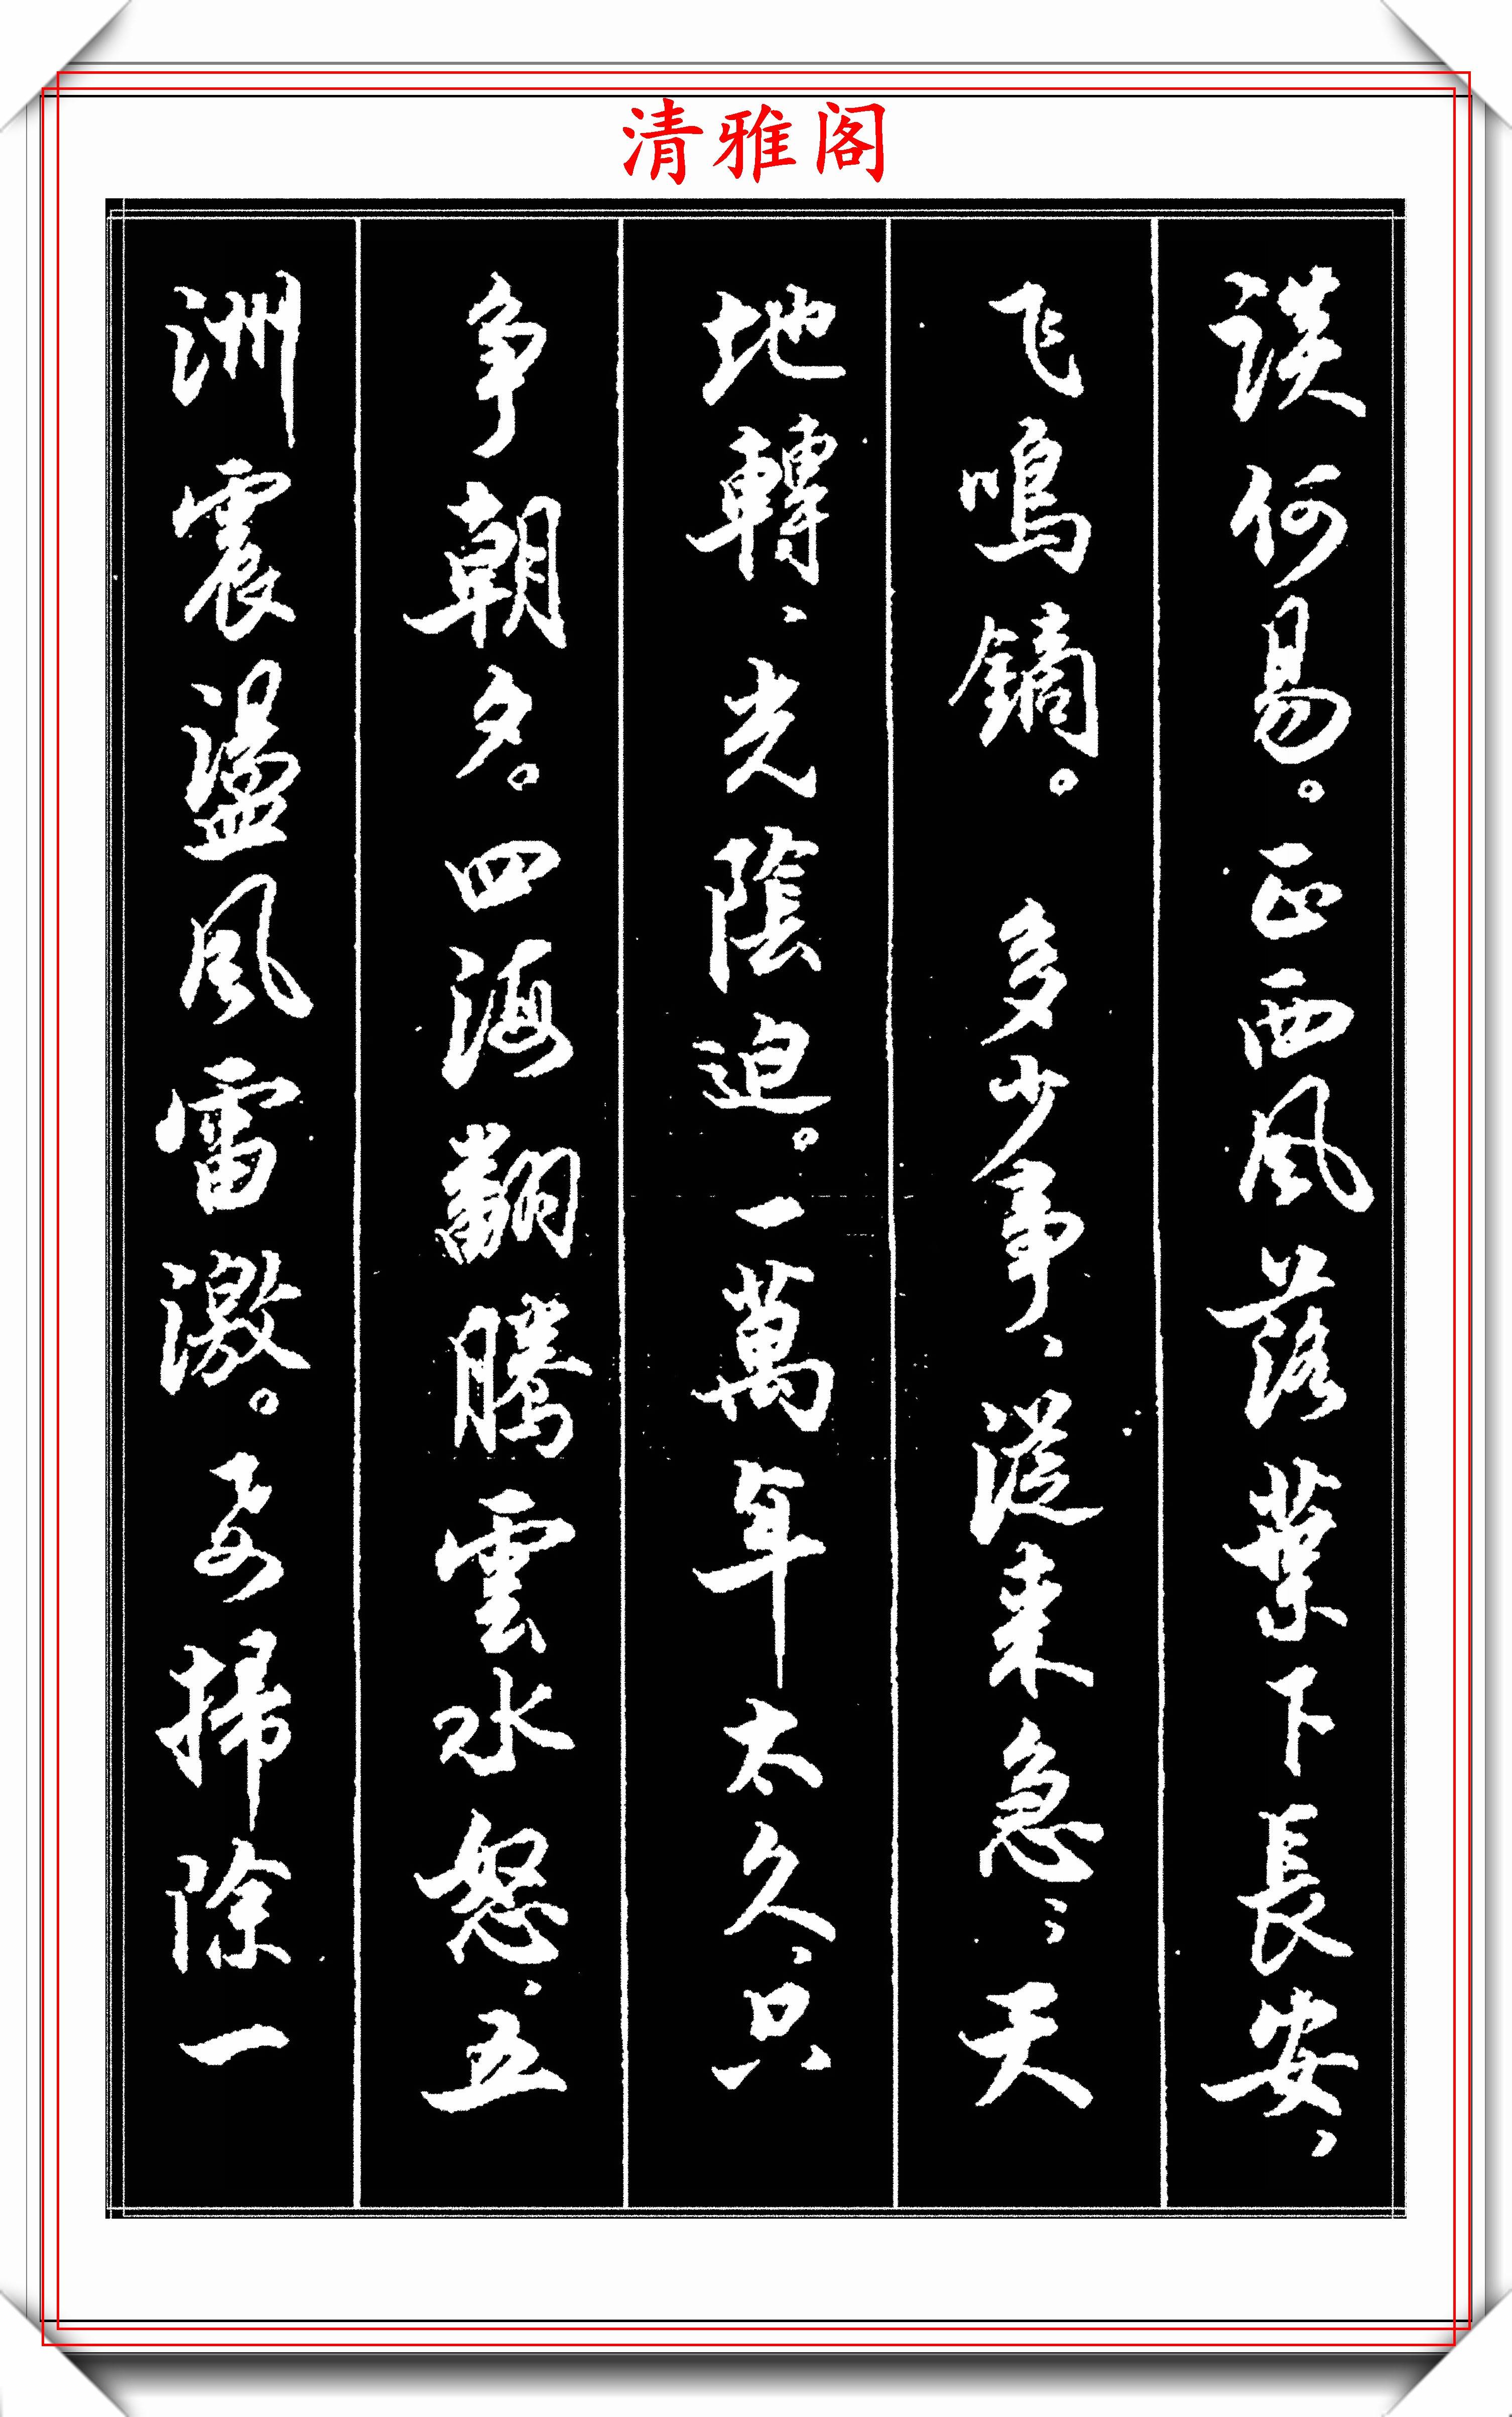 清雅阁
談何易。正西風落葉下長安，
飞鳴鏑。 多少事、從来急；天
地轉、光陰迫。一萬年太久，只
争朝夕。四海翻騰雲水怒，五
洲震盪風雷激。要掃除一